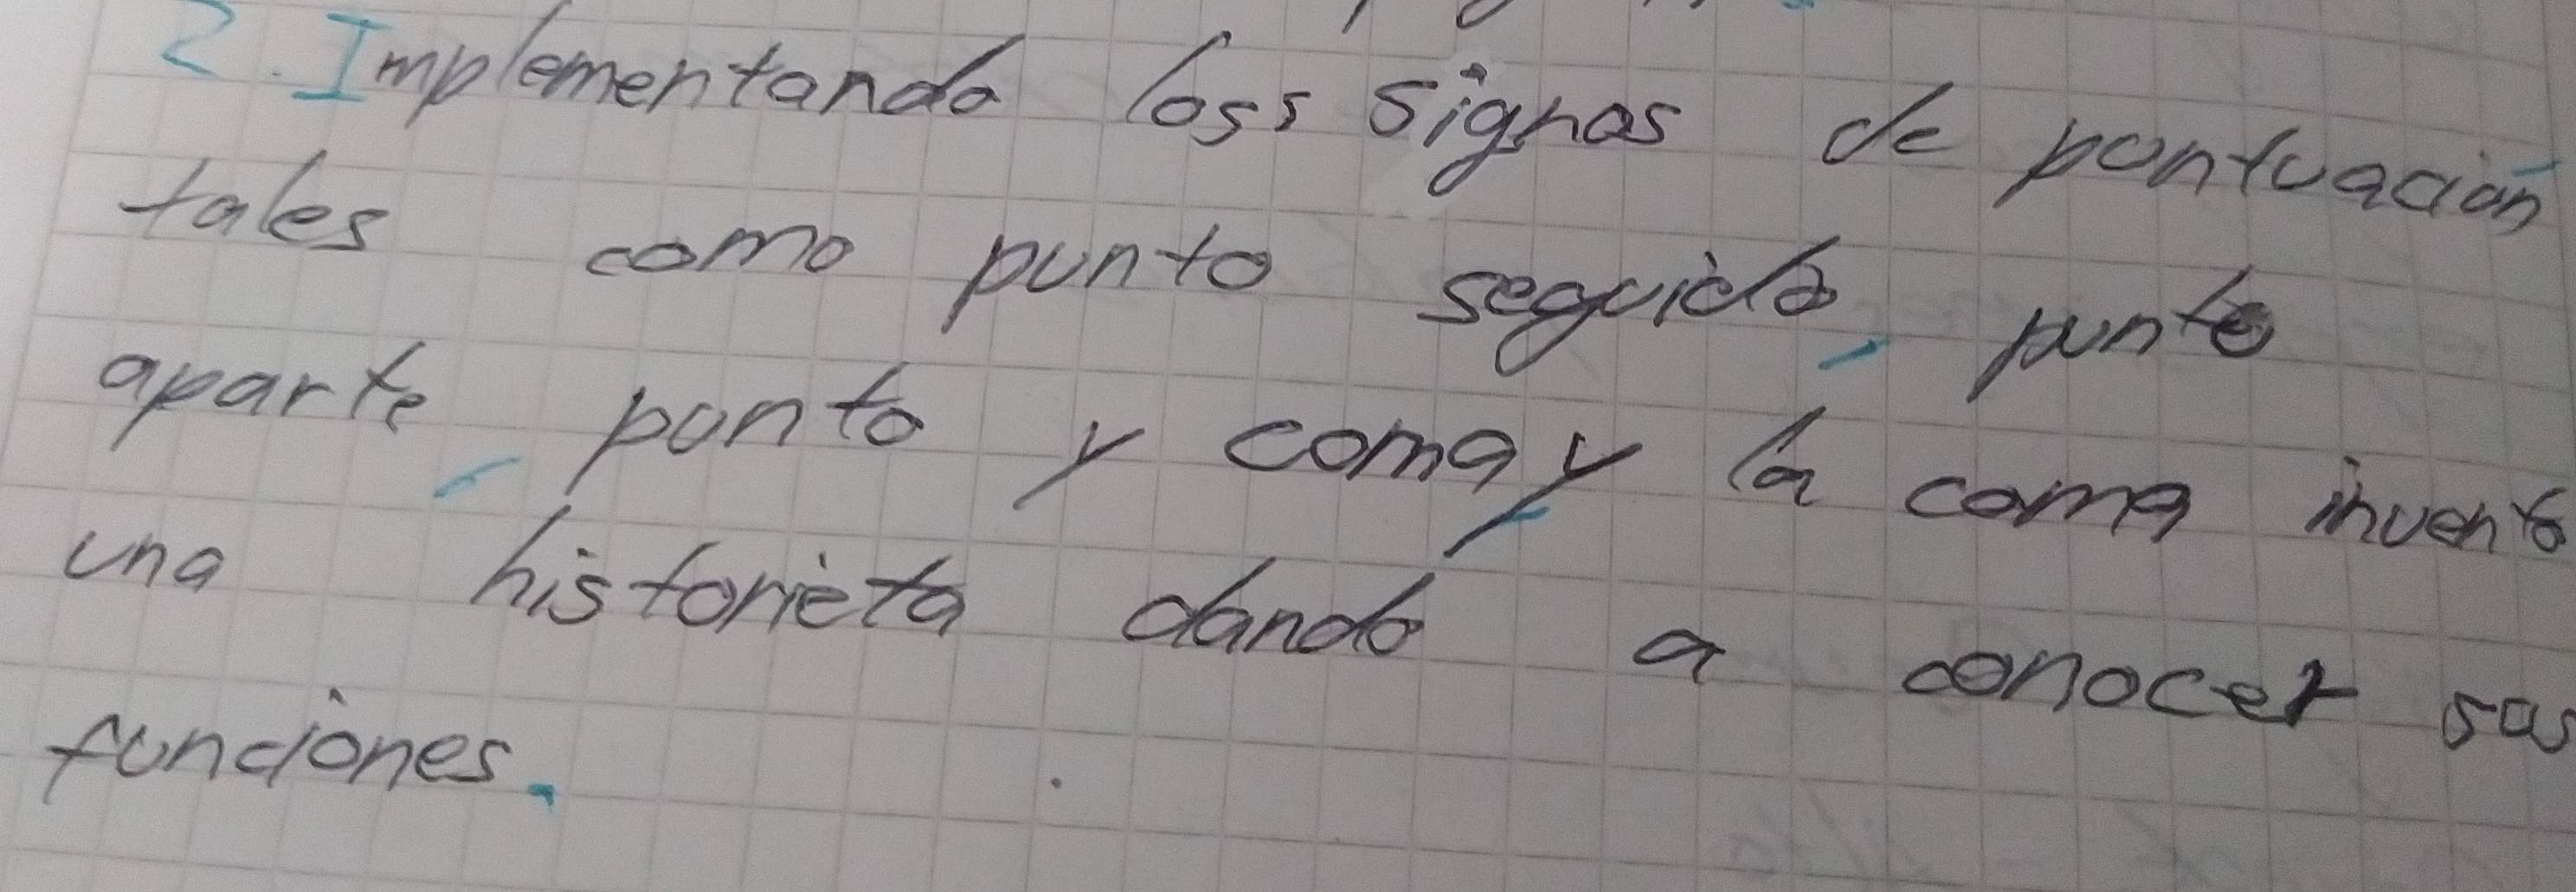 2. Implementando loss signos de pontuación
tales como punto seguido, punto
aparte, punto y coma y la coma invento
una historieta dando a conocer sus
funciones.